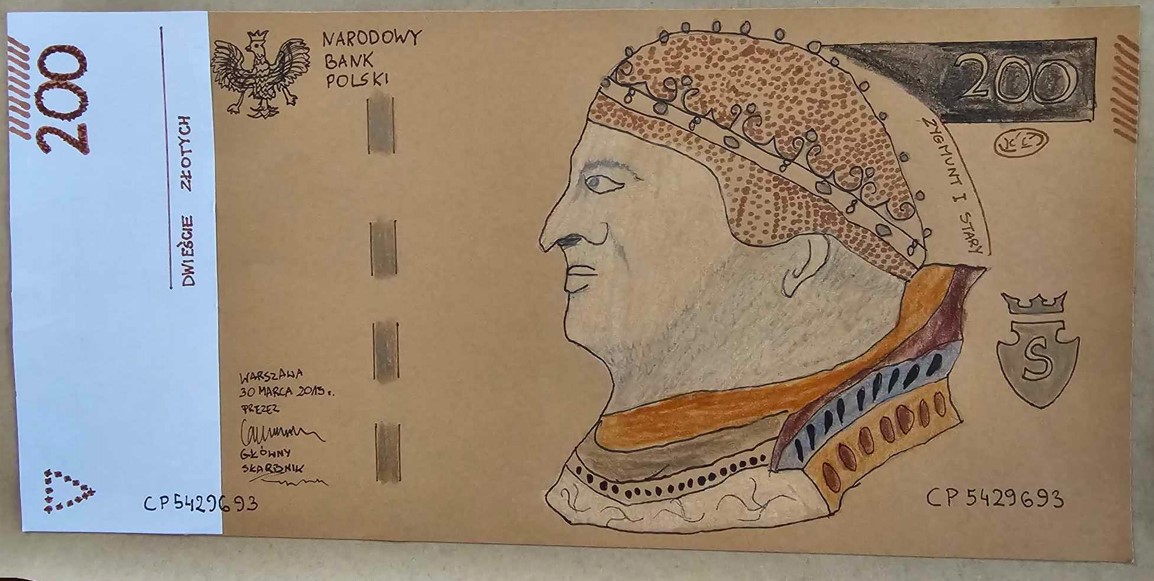 200
DWIEŚCIE ZŁOTYCH
NARODOWY
BANK
POLSKI
200
ZYGMUNT I STARY
S
WARSZAWA
30 MARCA 2015 r.
PREZEZ
GŁÓWNY
SKARBNIK
CP5429693
CP5429693